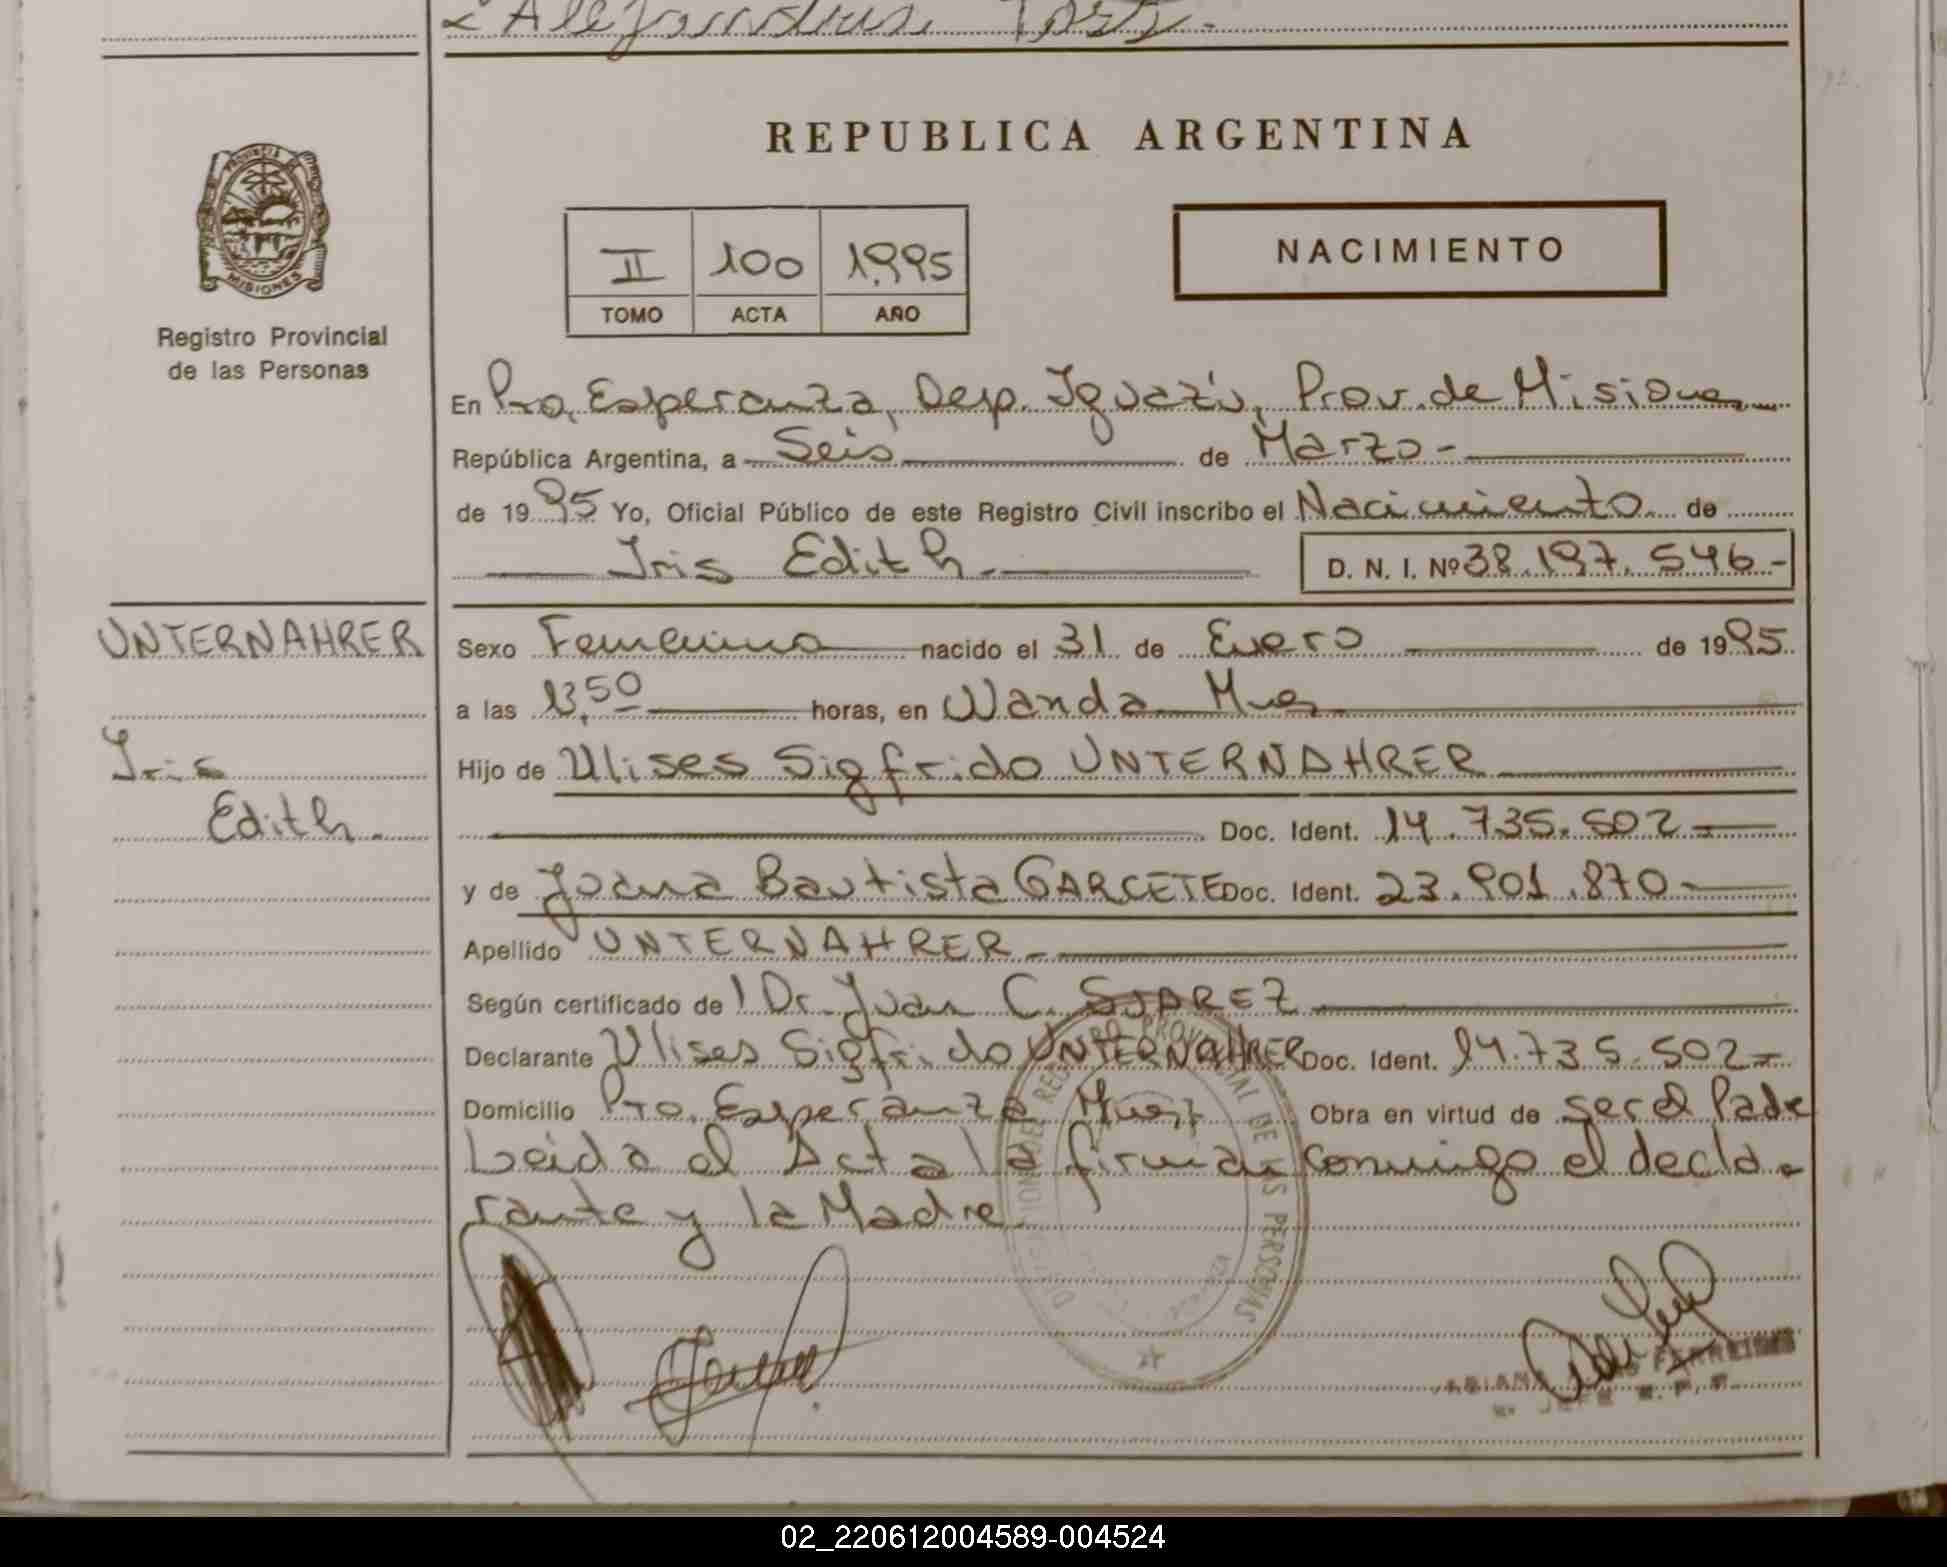 REPUBLICA ARGENTINA
PROVINCIA DE
MISIONES
Registro Provincial
de las Personas
II 100 1995
TOMO ACTA AÑO
NACIMIENTO
En Pto. Esperanza, Dep. Iguazú, Prov. de Misiones
República Argentina, a Seis de Marzo -
de 1995 Yo, Oficial Público de este Registro Civil inscribo el Nacimiento de
Iris Edith. D. N. I. Nº 38.197.546-
UNTERNAHRER
Iris
Edith.
Sexo Femenino nacido el 31 de Enero de 1995
a las 13,50 horas, en Wanda Mnes
Hijo de Ulises Sigfrido UNTERNAHRER
Doc. Ident. 14.735.502-
y de Juana Bautista GARCETE Doc. Ident. 23.901.870-
Apellido UNTERNAHRER-
Según certificado de Dr. Juan C. SUAREZ
Declarante Ulises Sigfrido UNTERNAHRER Doc. Ident. 14.735.502-
Domicilio Pto. Esperanza Obra en virtud de ser el Padre
Leida el Acta la firman conmigo el decla-
rante y la Madre.
REGISTRO PROVINCIAL DE LAS PERSONAS
02_220612004589-004524